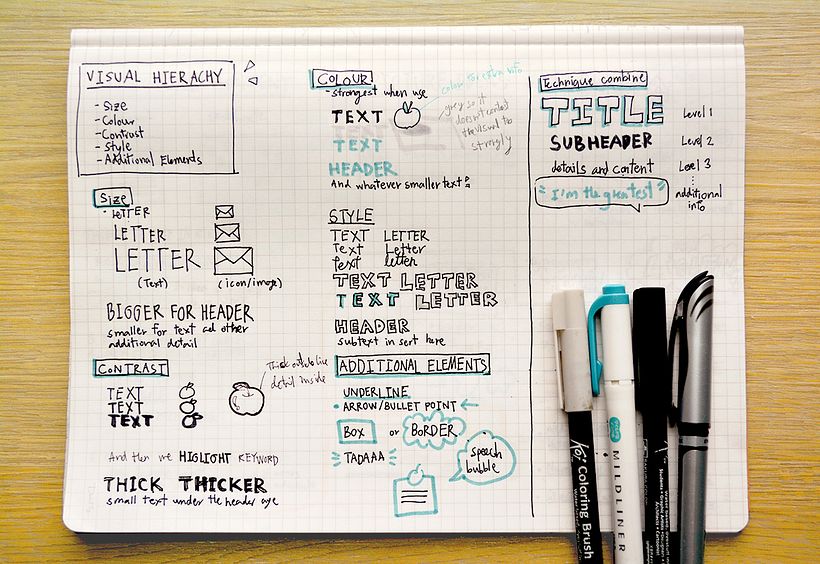 VISUAL HIERACHY
- Size
- Colour
- Contrast
- Style
- Additional Elements
Size
LETTER
LETTER
LETTER
(Text) (icon/image)
BIGGER FOR HEADER
smaller for text ad other
additional detail
CONTRAST
TEXT
TEXT
TEXT
Thick outside line
detail inside
And then we HIGLIGHT KEYWORD
THICK THICKER
small text under the header aye
COLOUR
- strongest when use
TEXT
TEXT
TEXT
HEADER
And whatever smaller text
colour for extra info
grey so it
doesn't contest
the visual to
strongly
STYLE
TEXT LETTER
Text Letter
Text letter
TEXT LETTER
TEXT LETTER
HEADER
subtext in sort here
ADDITIONAL ELEMENTS
UNDERLINE
• ARROW/BULLET POINT ←
BOX or BORDER
TADAAA
speech
bubble
Technique combine
TITLE Level 1
SUBHEADER Level 2
details and content Level 3
"I'm the greatest" additional
info
Koi Coloring Brush
MILDLINER